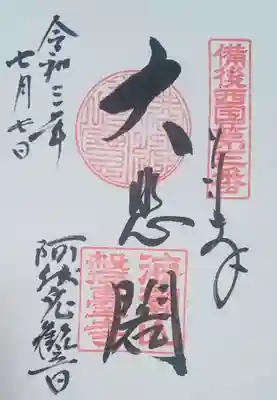 備後西国第三番
奉拝
大悲閣
磐臺寺
阿伏兎觀音
令和三年
七月七日